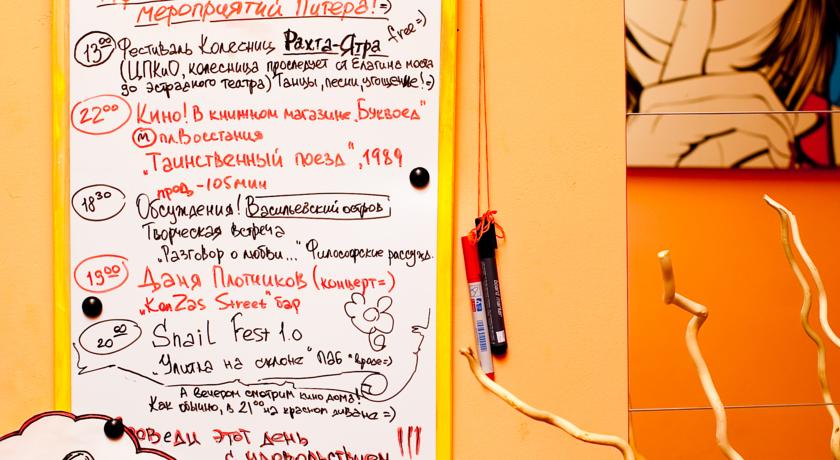 мероприятий Питера!=)
13⁰⁰ Фестиваль Колесниц Ратха-Ятра free=)
(ЦПКиО, колесница проследует от Елагина моста
до эстрадного театра) Танцы, песни, угощение!=)
22⁰⁰ Кино! В книжном магазине „Буквоед"
М пл. Восстания
„Таинственный поезд", 1989
прод. - 105 мин
18³⁰ Обсуждения! Васильевский остров
Творческая встреча
„Разговор о любви..." Философские рассужд.
19⁰⁰ Даня Плотников (концерт=)
„KonZas Street" бар
20⁰⁰ Snail Fest 1.0
„Улитка на склоне" паб
А вечером смотрим кино дома!
Как обычно, в 21⁰⁰ на красном диване =)
Проведи этот день
с удовольствием !!!
board marker